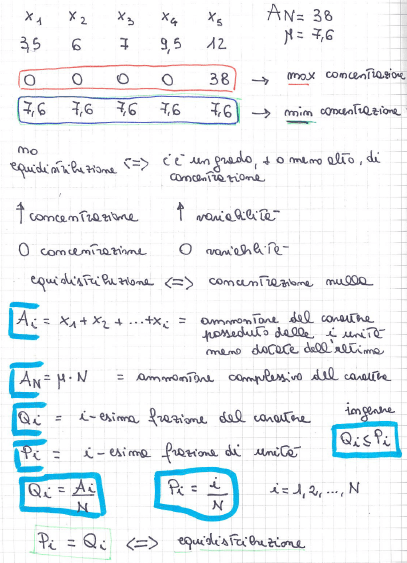 x₁ x₂ x₃ x₄ x₅ AN = 38
3,5 6 7 9,5 12 μ = 7,6
0 0 0 0 38 → max concentrazione
7,6 7,6 7,6 7,6 7,6 → min concentrazione
no
equidistribuzione <=> c'è un grado, + o meno alto, di
concentrazione
↑ concentrazione ↑ variabilità
0 concentrazione 0 variabilità
equidistribuzione <=> concentrazione nulla
Ai = x₁ + x₂ + ... + xi = ammontare del carattere
posseduto dalle i unità
meno dotate dell'
AN = μ · N = ammontare complessivo del carattere
Qi = i-esima frazione del carattere in genere
Pi = i-esima frazione di unità Qi ≤ Pi
Qi = Ai/N Pi = i/N i = 1, 2, ..., N
Pi = Qi <=> equidistribuzione